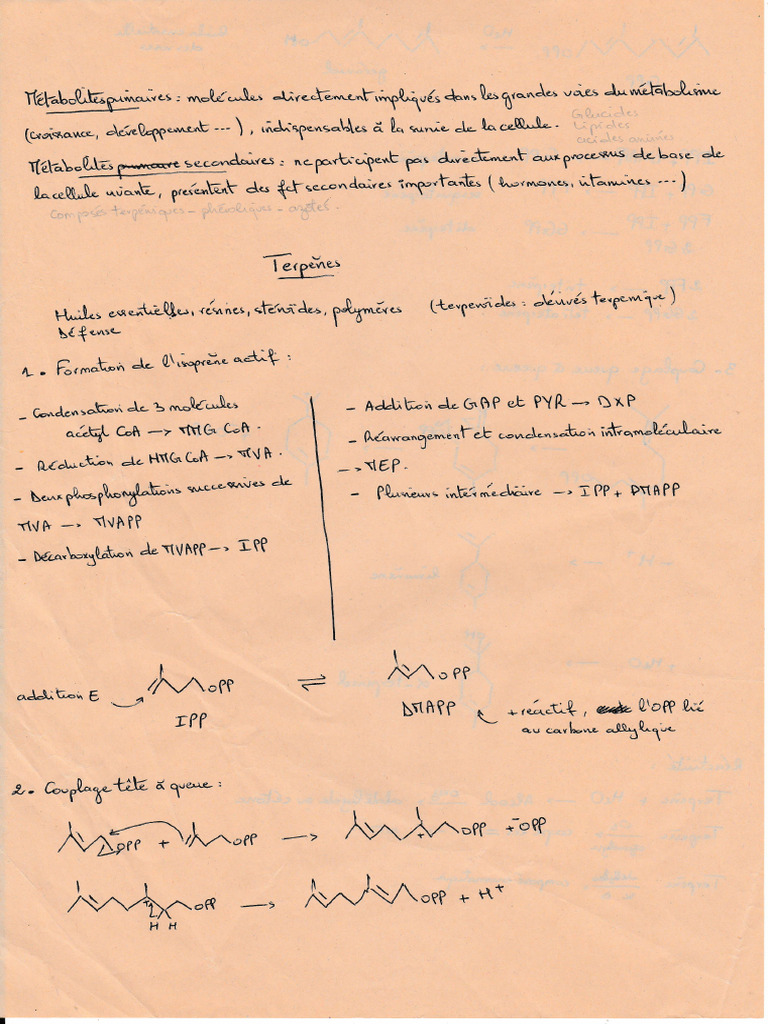 Métabolites primaires : molécules directement impliqués dans les grandes voies du métabolisme
(croissance, développement ---), indispensables à la survie de la cellule. Glucides
Lipides
acides aminés
Métabolites primaire secondaires : ne participent pas directement aux processus de base de
la cellule vivante, présentent des fct secondaires importantes (hormones, vitamines ---)
Composés terpéniques - phéoliques - azotés.
Terpènes
Huiles essentielles, résines, stéroïdes, polymères (terpenoïdes : dérivés terpenique)
Défense
1. Formation de l'isoprène actif :
- Condensation de 3 molécules
acétyl CoA → HMG CoA.
- Réduction de HMG CoA → MVA.
- Deux phosphorylations successives de
MVA → MVAPP
- Décarboxylation de MVAPP → IPP
- Addition de GAP et PYR → DXP
- Réarrangement et condensation intramoléculaire
→ MEP.
- Plusieurs intermédiaire → IPP + DMAPP
addition E
OPP
IPP
⇌
OPP
DMAPP
+ réactif, l'OPP lié
au carbone allylique
2. Couplage tête à queue :
OPP + OPP → + OPP + ⁻OPP
+ OPP → OPP + H⁺
H H